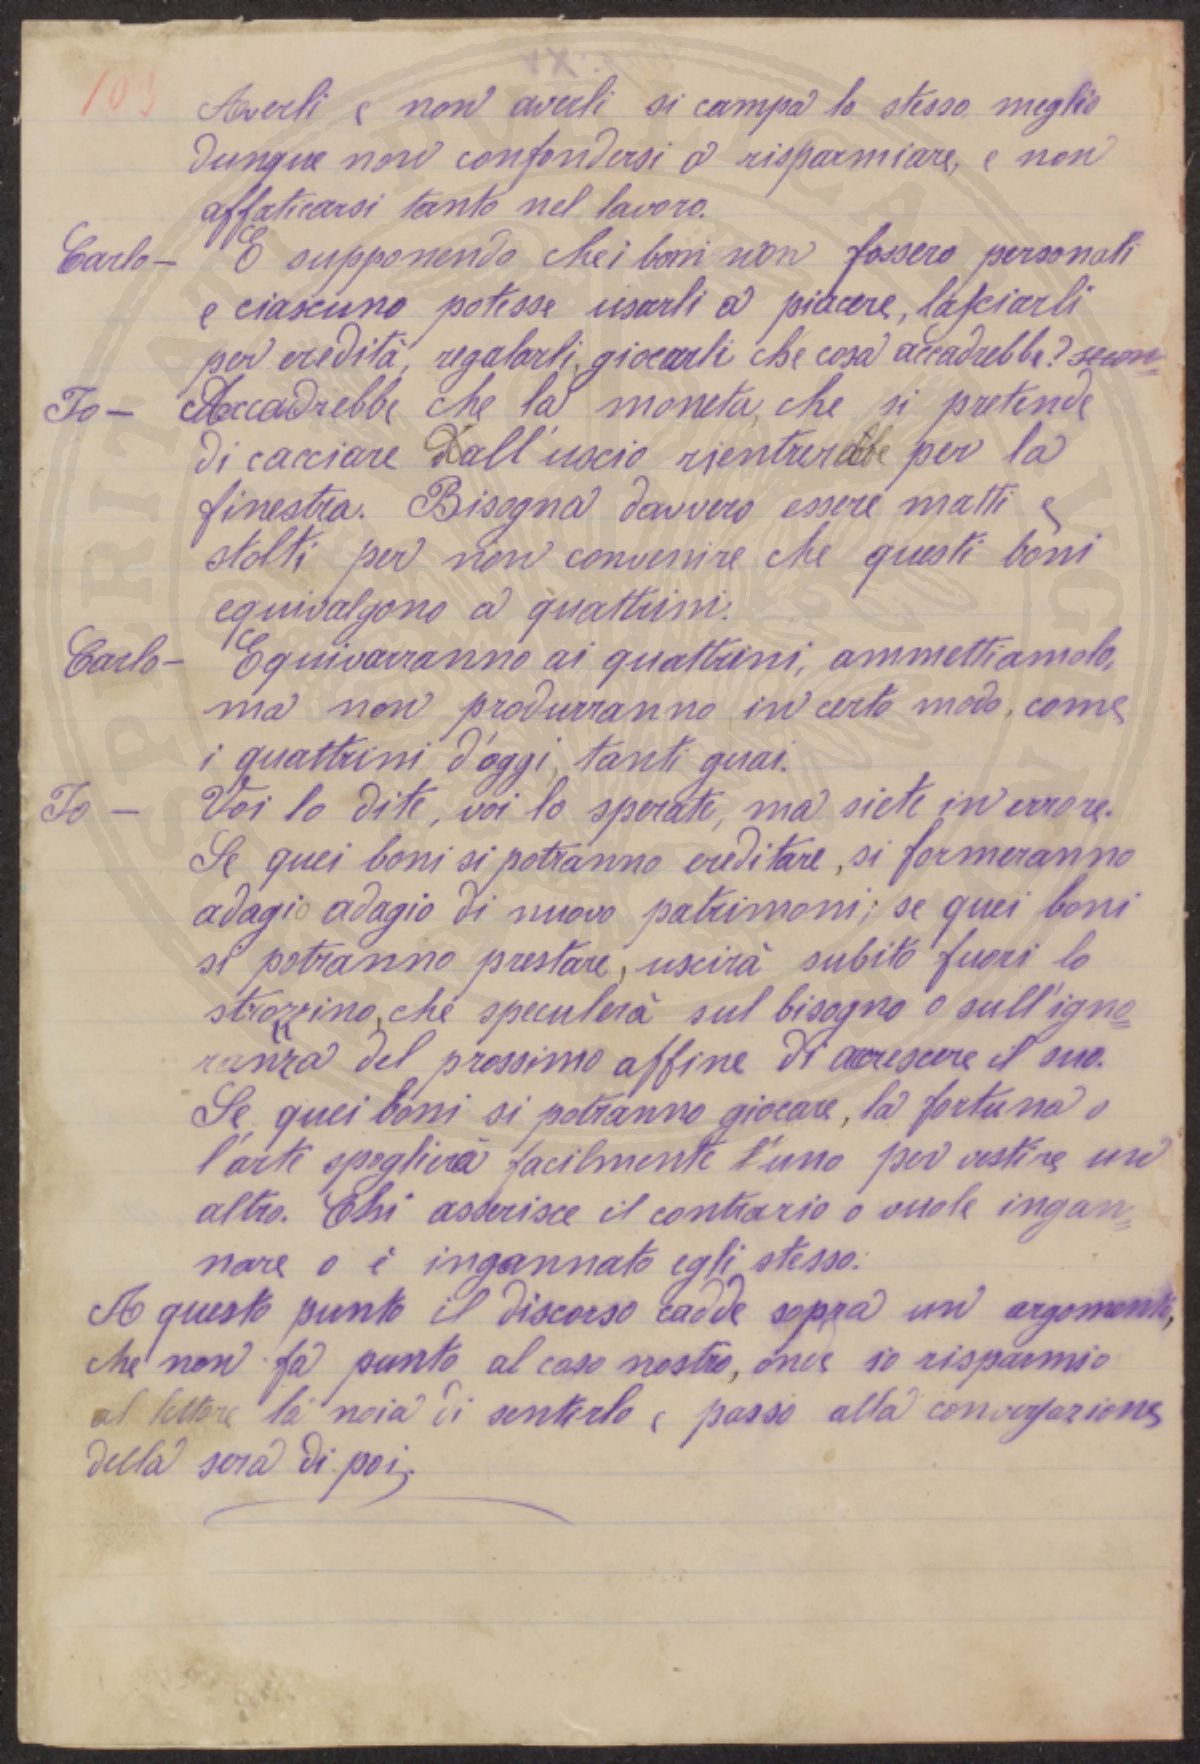 103
Averli e non averli si campa lo stesso, meglio
dunque non confondersi a risparmiare, e non
affaticarsi tanto nel lavoro.
Carlo - E supponendo che i boni non fossero personali
e ciascuno potesse usarli a piacere, lasciarli
per eredità, regalarli, giocarli che cosa accadrebbe?
Io - Accadrebbe che la moneta, che si pretende
di cacciare dall'uscio rientrerebbe per la
finestra. Bisogna davvero essere matti e
stolti per non convenire che questi boni
equivalgono a quattrini.
Carlo - Equivarranno ai quattrini, ammettiamolo,
ma non produrranno, in certo modo, come
i quattrini d'oggi, tanti guai.
Io - Voi lo dite, voi lo sperate, ma siete in errore.
Se quei boni si potranno ereditare, si formeranno
adagio adagio di nuovo patrimoni; se quei boni
si potranno prestare, uscirà subito fuori lo
strozzino, che speculerà sul bisogno o sull'igno=
ranza del prossimo affine di accrescere il suo.
Se quei boni si potranno giocare, la fortuna o
l'arte spoglierà facilmente l'uno per vestire un
altro. Chi asserisce il contrario o vuole ingan=
nare o è ingannato egli stesso.
A questo punto il discorso cadde sopra un argomento,
che non fa punto al caso nostro, onde io risparmio
al lettore la noia di sentirlo e passo alla conversazione
della sera di poi.